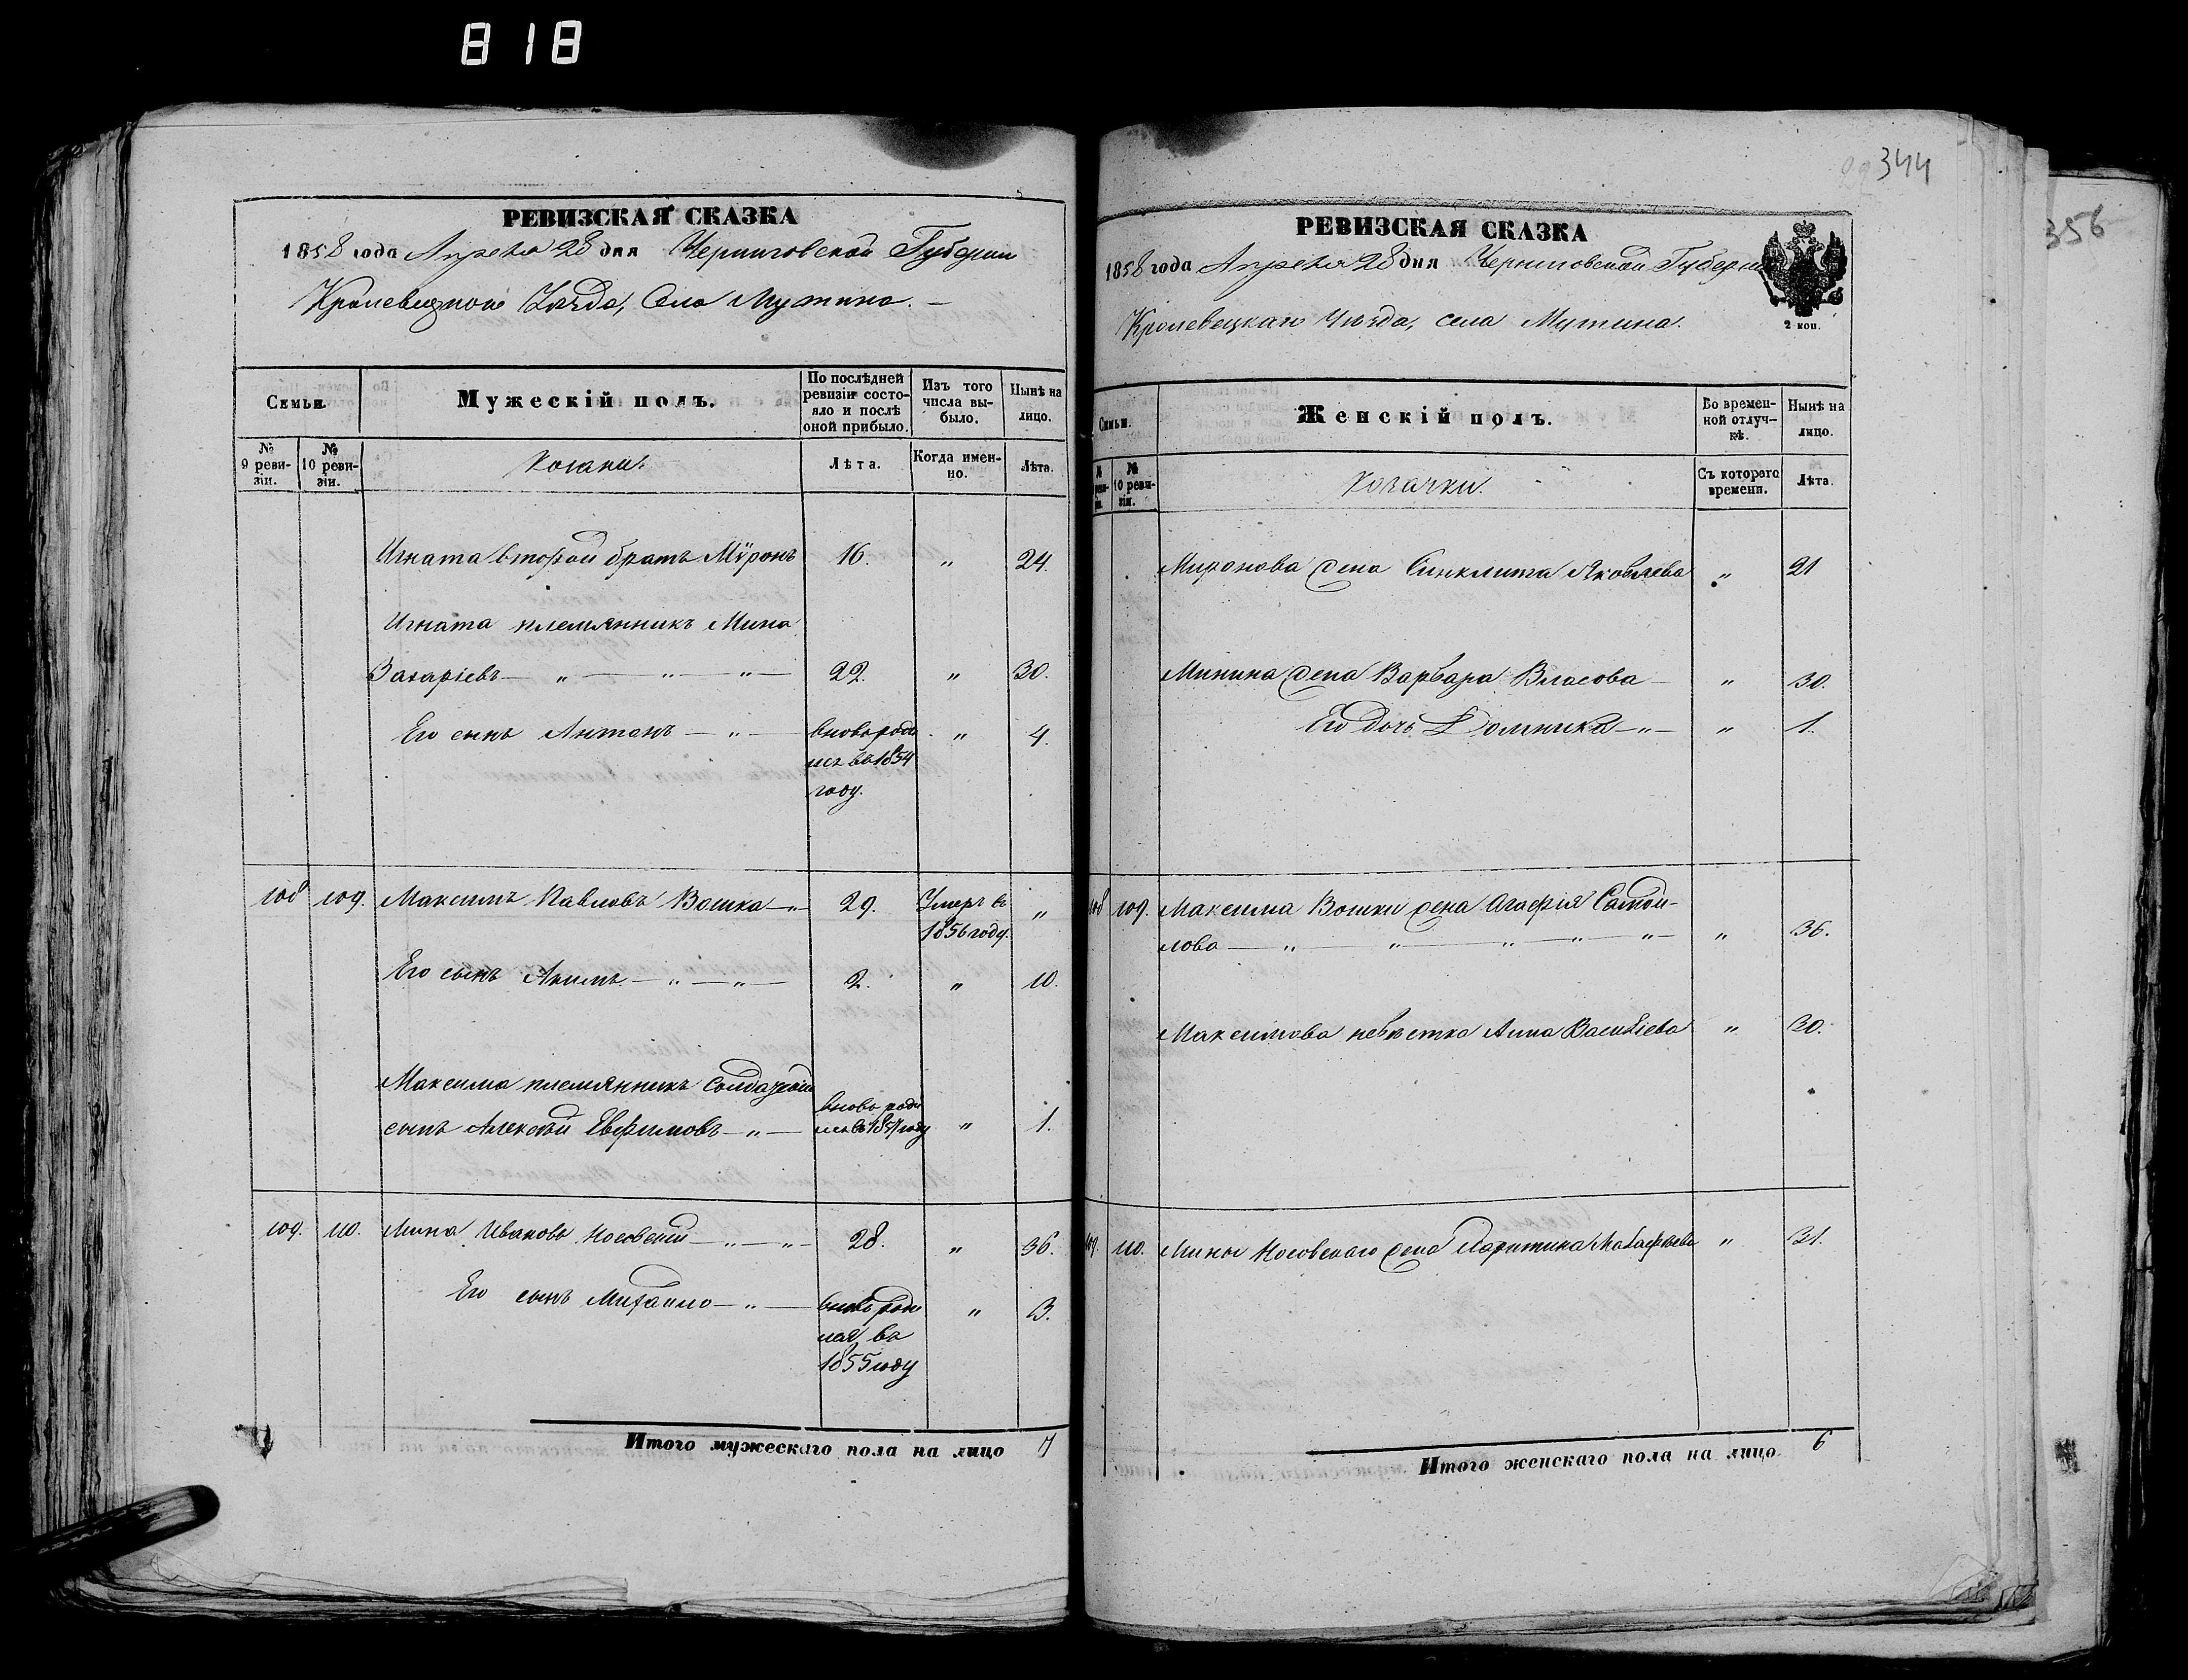 818
344
356
РЕВИЗСКАЯ СКАЗКА
1858 года Апреля 28 дня Черниговской Губернии
Кролевецкого Уѣзда, Села Мутина.
Семьи.
Мужескій полъ.
По послѣдней ревизіи состояло и послѣ оной прибыло.
Изъ того числа выбыло.
Нынѣ на лицо.
№ 9 ревизіи.
№ 10 ревизіи.
Козаки.
Лѣта.
Когда именно.
Лѣта.
Игната второй братъ Мѵронъ 16. " 24.
Игната племянникъ Мина
Захаріевъ — " — " — " — 22. " 30.
Его сынъ Антонъ — " — вновь роди " 4.
лся въ 1854
году.
108 109. Максимъ Павловъ Вошка — " 29. Умеръ въ "
1856 году.
Его сынъ Акимъ — " — " — 2. " 10.
Максима племянникъ Солдатской
сынъ Алексѣй Евфимовъ — " — вновь роди " 1.
лся въ 1857 году
109. 110. Мина Ивановъ Носовскій — " — " 28. " 36.
Его сынъ Михайло — " — вновь роди " 3.
лся въ
1855 году
Итого мужескаго пола на лицо 7
РЕВИЗСКАЯ СКАЗКА
1858 года Апреля 28 дня Черниговской Губерни
Кролевецкаго Уѣзда, села Мутина.
2 коп.
Семьи.
Женскій полъ.
Во временной отлучкѣ.
Нынѣ на лицо.
№ 10 ревизіи.
Козачки.
Съ котораго времени.
Лѣта.
Миронова жена Синклита Яковлева " 21
Минина жена Варвара Власова — " 30.
Его дочь Домникія — " — " 1.
108 109. Максима Вошки жена Агафія Самой-
лова — " — " — " — " — " — " 36.
Максимова невѣстка Анна Василіева " 30.
109. 110. Мины Носовскаго жена Харитина " 31.
Итого женскаго пола на лицо 6